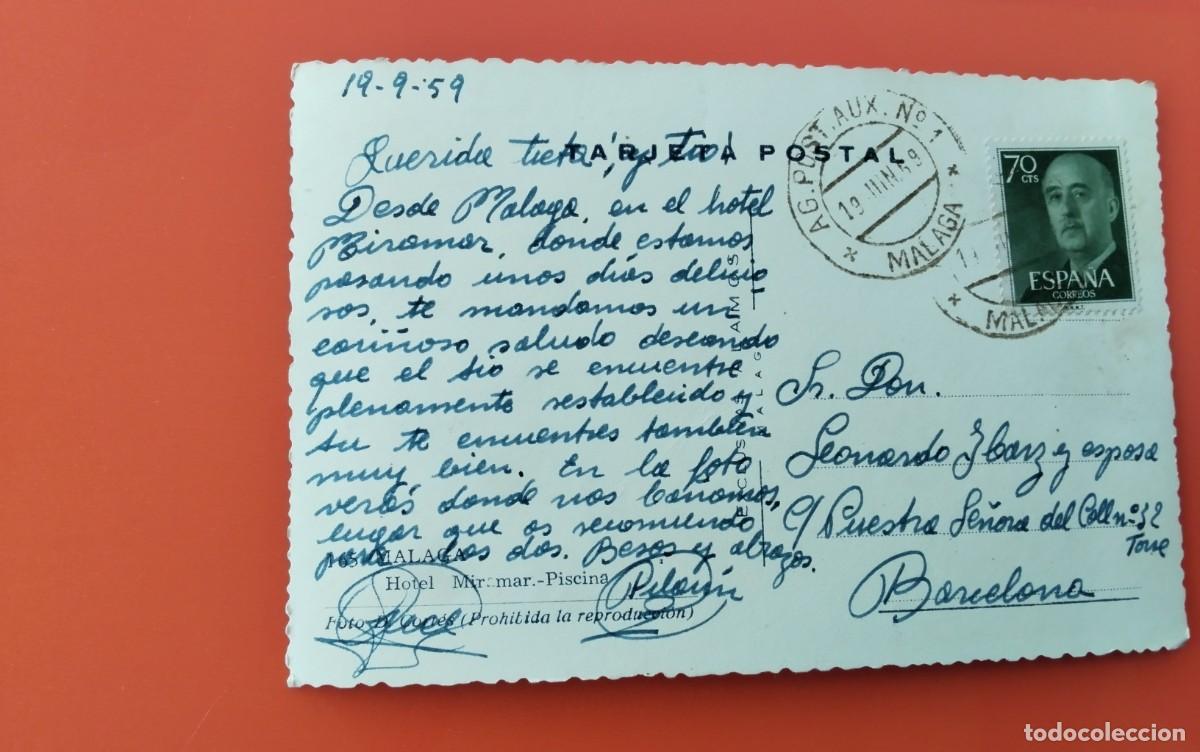 19-9-59
TARJETA POSTAL
Querida tieta, y tio!
Desde Malaga, en el hotel
Miramar, donde estamos
pasando unos días delicio
sos, te mandamos un
cariñoso saludo deseando
que el tio se encuentre
plenamente restablecido y
tu te encuentres también
muy bien. En la foto
verás donde nos bañamos,
lugar que os recomiendo
para los dos. Besos y abrazos.
Pilarín
MALAGA
Hotel Miramar.-Piscina
Foto D. Cortés (Prohibida la reproducción)
AG. POST. AUX. Nº 1
19 JUN. 59
MALAGA
MALAGA
70 CTS
ESPAÑA
CORREOS
Sr. Don.
Leonardo Ybarz y esposa
c/ Nuestra Señora del Coll nº 32
Torre
Barcelona
todocoleccion